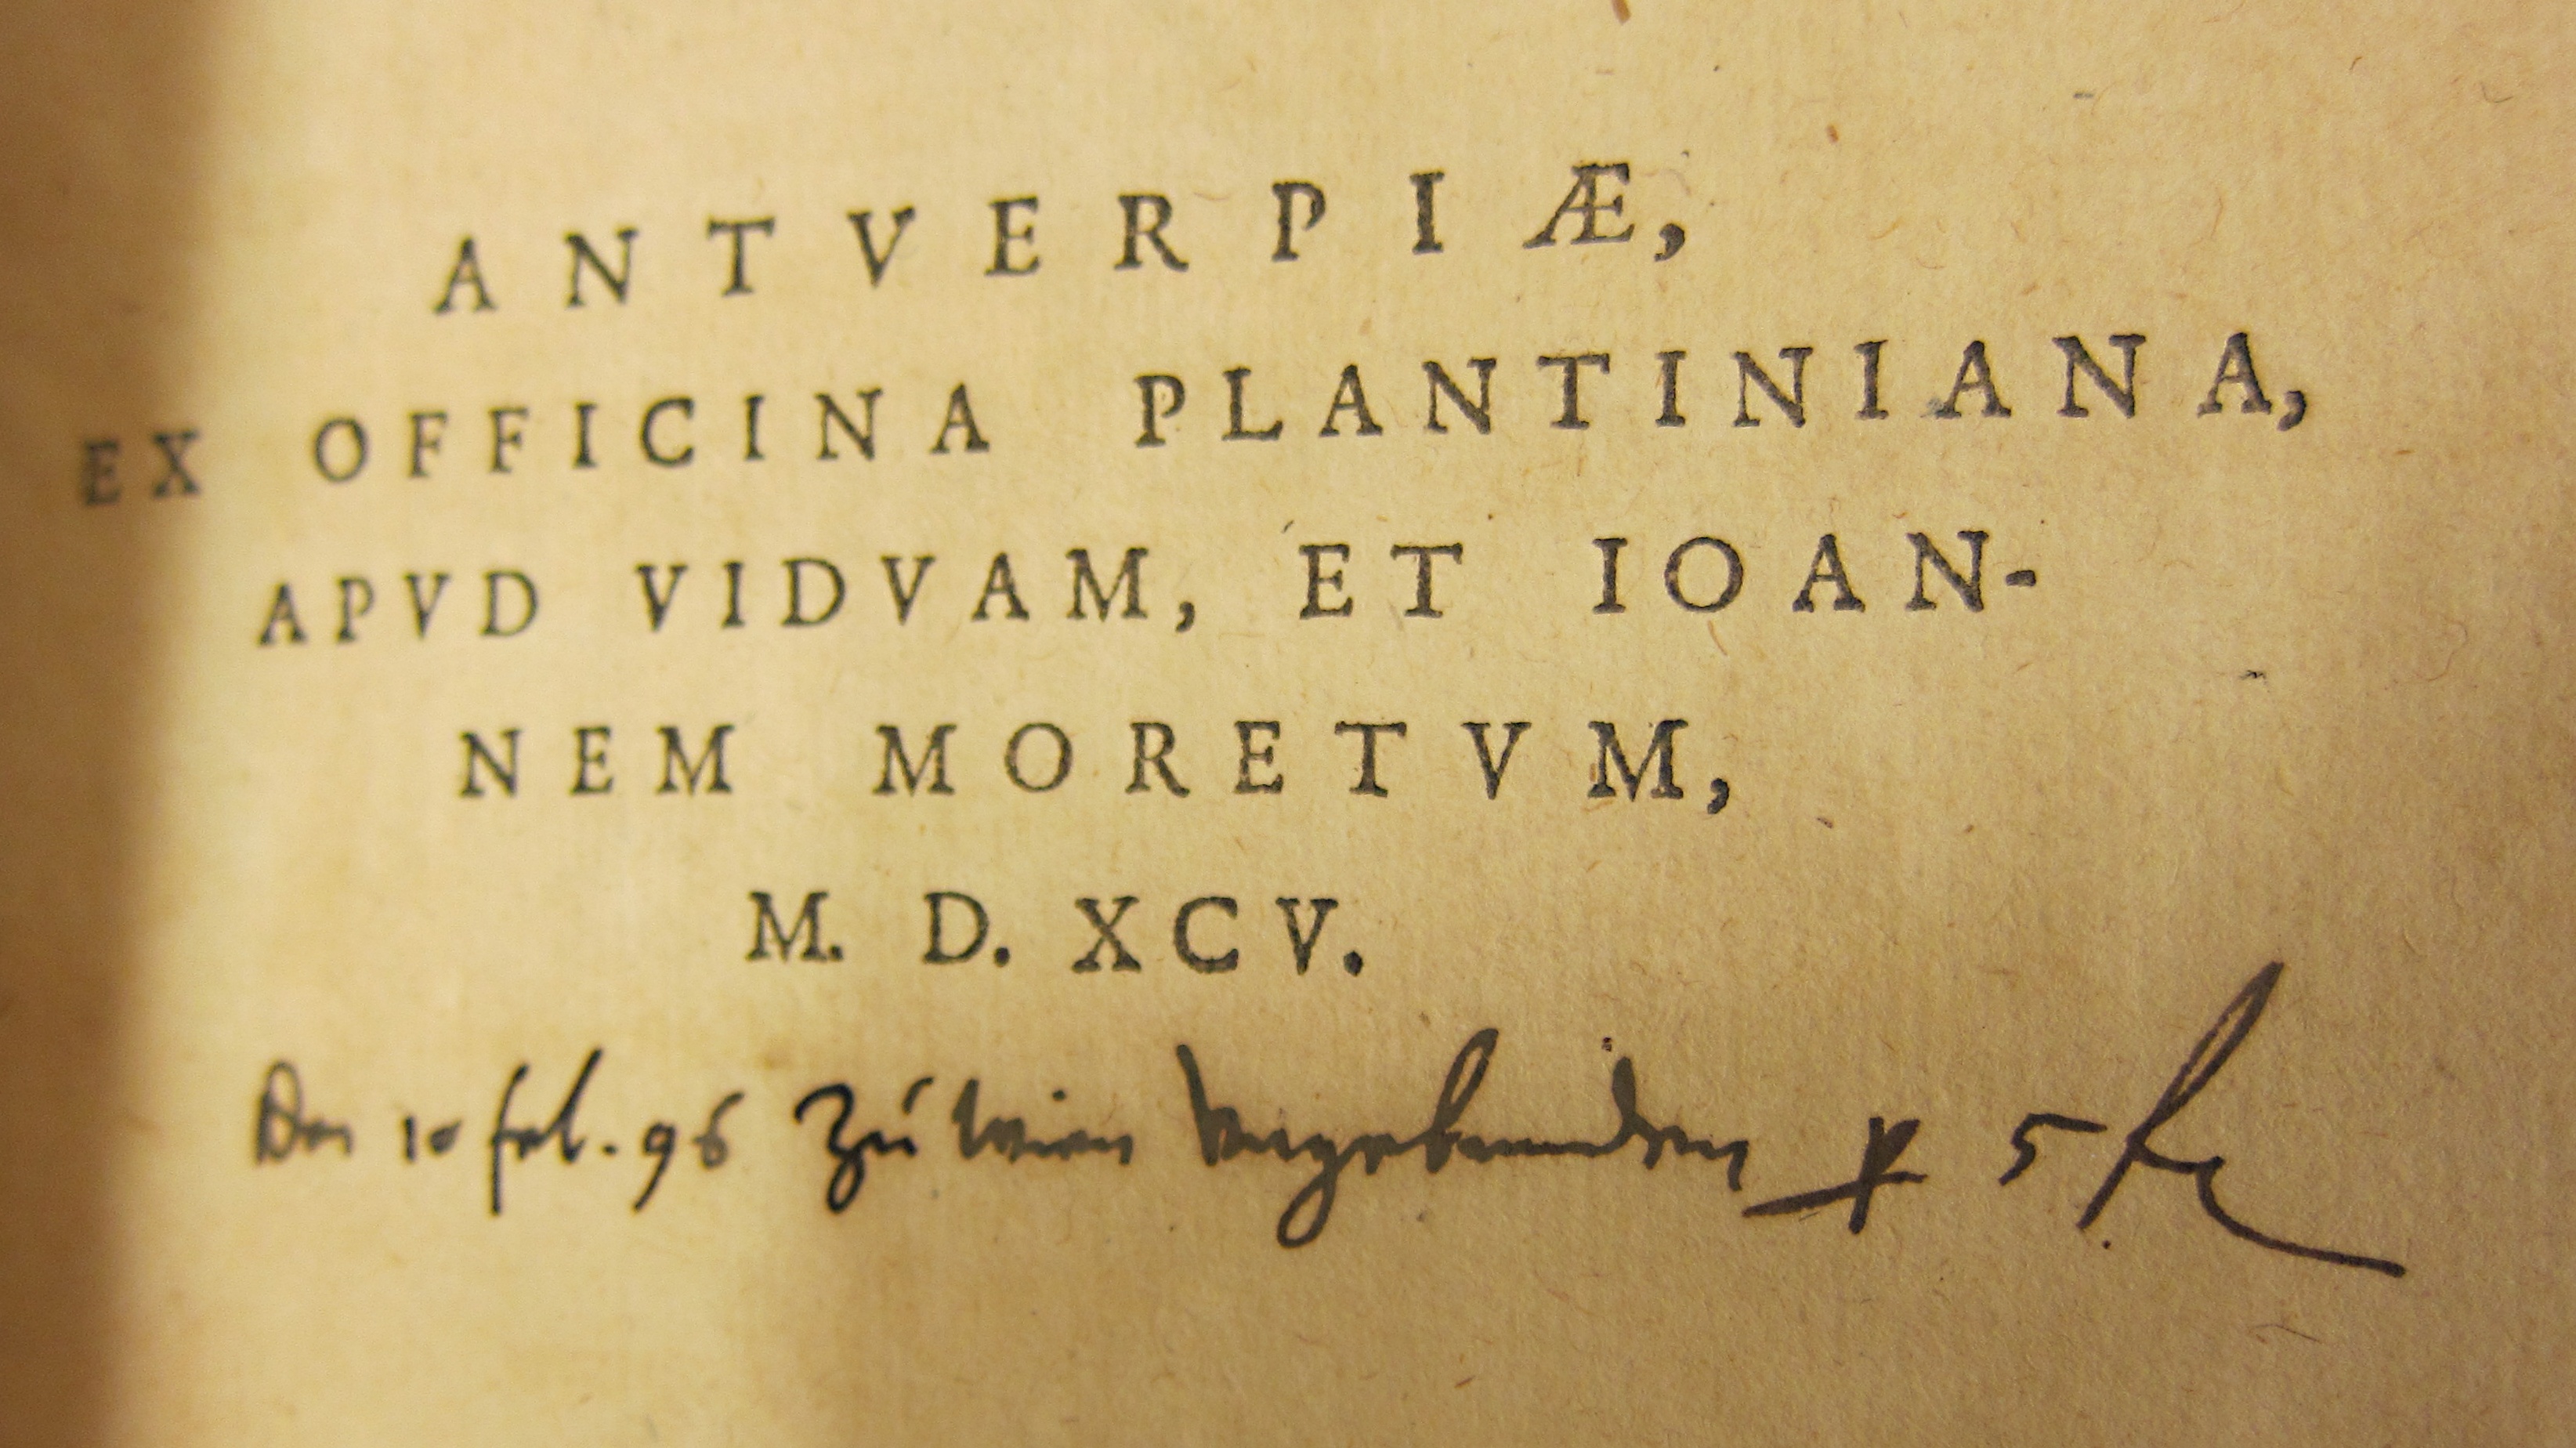 ANTVERPIÆ,
EX OFFICINA PLANTINIANA,
APVD VIDVAM, ET IOAN-
NEM MORETVM,
M. D. XCV.
Den 10 feb. 96 Zu wien Vngebunden 5